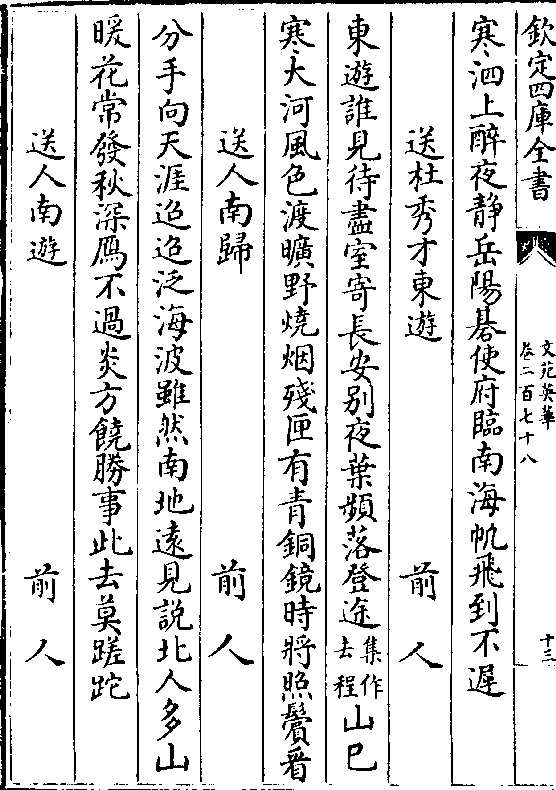 欽定四庫全書
文苑英華
卷二百七十八
十三
寒泗上醉夜静岳陽碁使府臨南海帆飛到不遲
送杜秀才東遊 前人
東遊誰見待盡室寄長安别夜葉頻落登途集作去程山已
寒大河風色渡曠野燒烟殘匣有青銅鏡時將照鬢看
送人南歸 前人
分手向天涯迢迢泛海波雖然南地遠見説北人多山
暖花常發秋深鴈不過炎方饒勝事此去莫蹉跎
送人南遊 前人